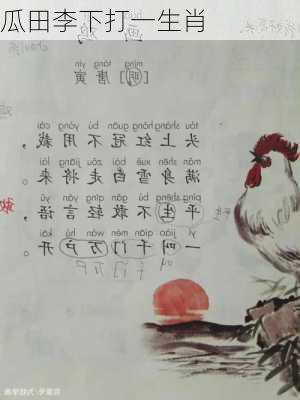 瓜田李下打一生肖
画 鸡
míng táng yín
[明] 唐 寅
tóu shàng hóng guān bú yòng cái
头 上 红 冠 不 用 裁，
mǎn shēn xuě bái zǒu jiāng lái
满 身 雪 白 走 将 来。
píng shēng bù gǎn qīng yán yǔ
平 生 不 敢 轻 言 语，
yí jiào qiān mén wàn hù kāi
一 叫 千 门 万 户 开。